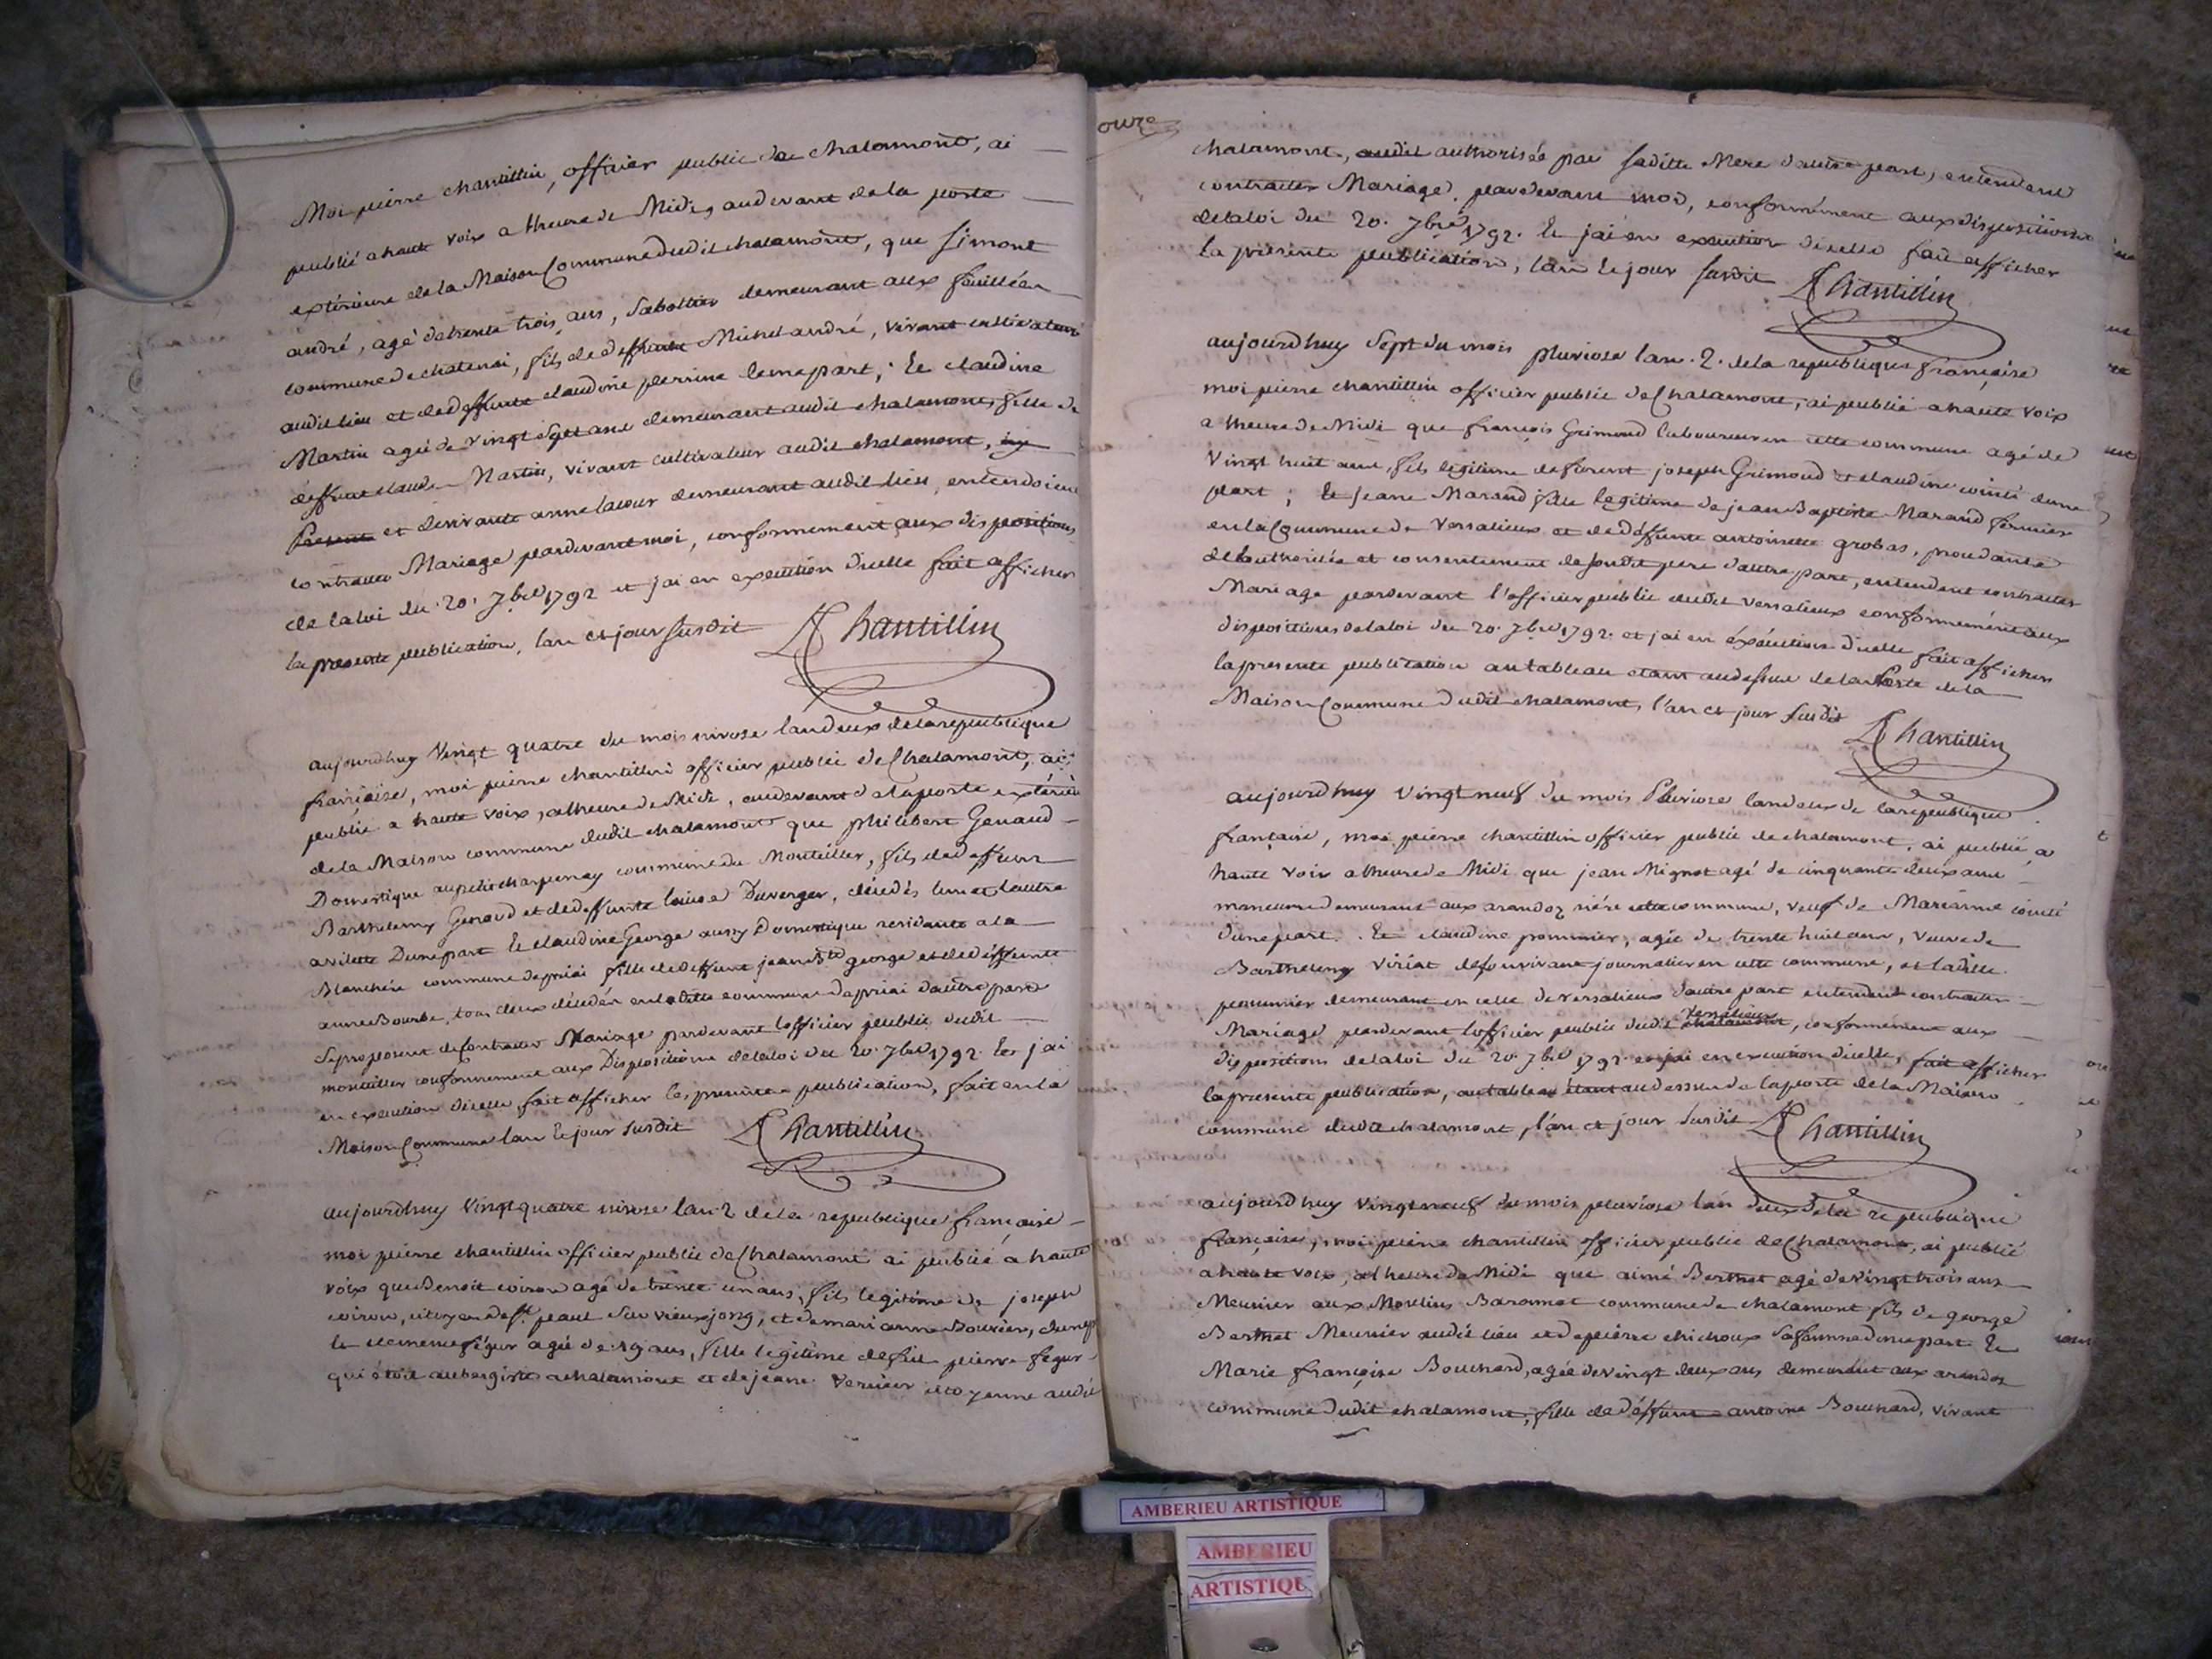 Moi pierre chantillin, officier public de chalamont, ai
publié a haute voix a lheure de Midi, audevant dela porte
extérieure dela Maison Commune dudit chalamont, que Simont
andré, agé detrente trois ans, Sabottier demeurant aux feuillées
commune de chatenai, fils de deffunt Michel andré, vivant cultivateur
audit lieu et de deffunte claudine perrine dune part; Et claudine
Martin agée de vingt sept ans demeurant audit chalamont, fille de
deffunt claude Martin, vivant cultivateur audit chalamont,
et devivante anne lacour demeurant audit lieu, entendoient
contracter Mariage pardevant moi, conformement aux dispositions
de la loi du 20. 7bre 1792 et jai en execution dicelle fait afficher
la presente publication, lan et jour susdit Chantillin
aujourdhuy Vingt quatre du mois nivose lan deux dela republique
française, moi pierre chantillin officier public de Chalamont, ai
publié a haute voix, a lheure de Midi, audevant dela porte extérieu
dela Maison commune dudit chalamont que philibert Genaud
Domestique au petit charpenay commune du Montellier, fils de deffunt
Barthelemy Genaud et de deffunte louise Duverger, décedés lun et lautre
a vilette Dune part Et claudine George aussy Domestique residante a la
Blanchere commune de priai fille de deffunt jean Bte george et de deffunte
anne Bourbe, tous deux décedés en la ditte commune de priai dautre part
Se proposent de Contracter Mariage pardevant lofficier public dudit
montellier conformement aux Dispositions de la loi du 20. 7bre 1792. Et jai
en execution dicelle fait afficher les presentes publication, fait en la
Maison Commune lan Et jour susdit Chantillin
aujourdhuy Vingt quatre nivose lan 2 dela republique française
moi pierre chantillin officier public de Chalamont ai publié a haute
voix que Benoit coiron agé de trente un ans, fils legitime de joseph
coiron, citoyen de St paul du vieux jong, et de marianne Bouvier, dune p
Et clemence fégur agée de 19 ans, fille legitime de feu pierre fegur
qui étoit aubergiste a chalamont et de jeanne Vernier citoyenne audit
onze
chalamont, authorisée par saditte Mere dautre part, entendent
contracter Mariage pardevant moi, conformement aux dispositions
delaloi du 20. 7bre 1792. Et jai en execution dicelle fait afficher
la présente publication, lan Et jour susdit Chantillin
aujourdhuy Sept du mois pluviose lan .2. dela republique française
moi pierre chantillin officier public de Chalamont, ai publié a haute voix
a lheure de Midi que françois Grimoud laboureur en cette commune agé de
vingt huit ans, fils legitime de forent joseph Grimoud et claudine cointi dune
part; Et Jeane Marand fille legitime de jean Baptiste Marand fermier
en la Commune de Versalieux et de déffunte antoinette grobas, proudante
de lauthoritée et consentement de sondit pere dautre part, entendent contracter
Mariage pardevant l'officier public dudit Versalieux conformement aux
dispositions delaloi du 20. 7bre 1792. et jai en éxécution dicelle fait afficher
la presente publication au tableau étant audessus de la Porte dela
Maison Commune dudit chalamont, l'an et jour susdit Chantillin
aujourdhuy vingt neuf du mois Pluviose lan deux de la republique
française, moi pierre chantillin officier public de chalamont, ai publié a
haute voix a lheure de Midi que jean Mignot agé de cinquante deux ans
manœuvre demeurant aux arandoz rière cette commune, veuf de Marianne
dune part. Et claudine pommier, agée de trente huit ans, veuve de
Barthelemy Viriat de son vivant journalier en cette commune, et ladite
pommier demeurant en celle de versalieux dautre part entendent contracter
Versalieux
Mariage pardevant lofficier public dudit chalamont, conformement aux
dispositions delaloi du 20. 7bre 1792. et jai en execution dicelle, fait afficher
la presente publication, au tableau étant audessus de la porte de la Maison
commune dudit chalamont, l'an et jour susdit Chantillin
aujourdhuy vingt neuf du mois pluviose l'an deux dela republique
française, moi pierre chantillin officier public de Chalamont, ai publié
a haute voix, a lheure de Midi que aimé Berthet agé de vingt trois ans
Meunier aux Moulins Baronnat commune de chalamont fils de george
Berthet Meunier audit lieu et de pierre chichoux sa femme dune part Et
Marie françoise Bouchard, agée de vingt deux ans demeurant aux arandoz
commune dudit chalamont, fille de déffunt antoine Bouchard, vivant
AMBERIEU ARTISTIQUE
AMBERIEU
ARTISTIQU